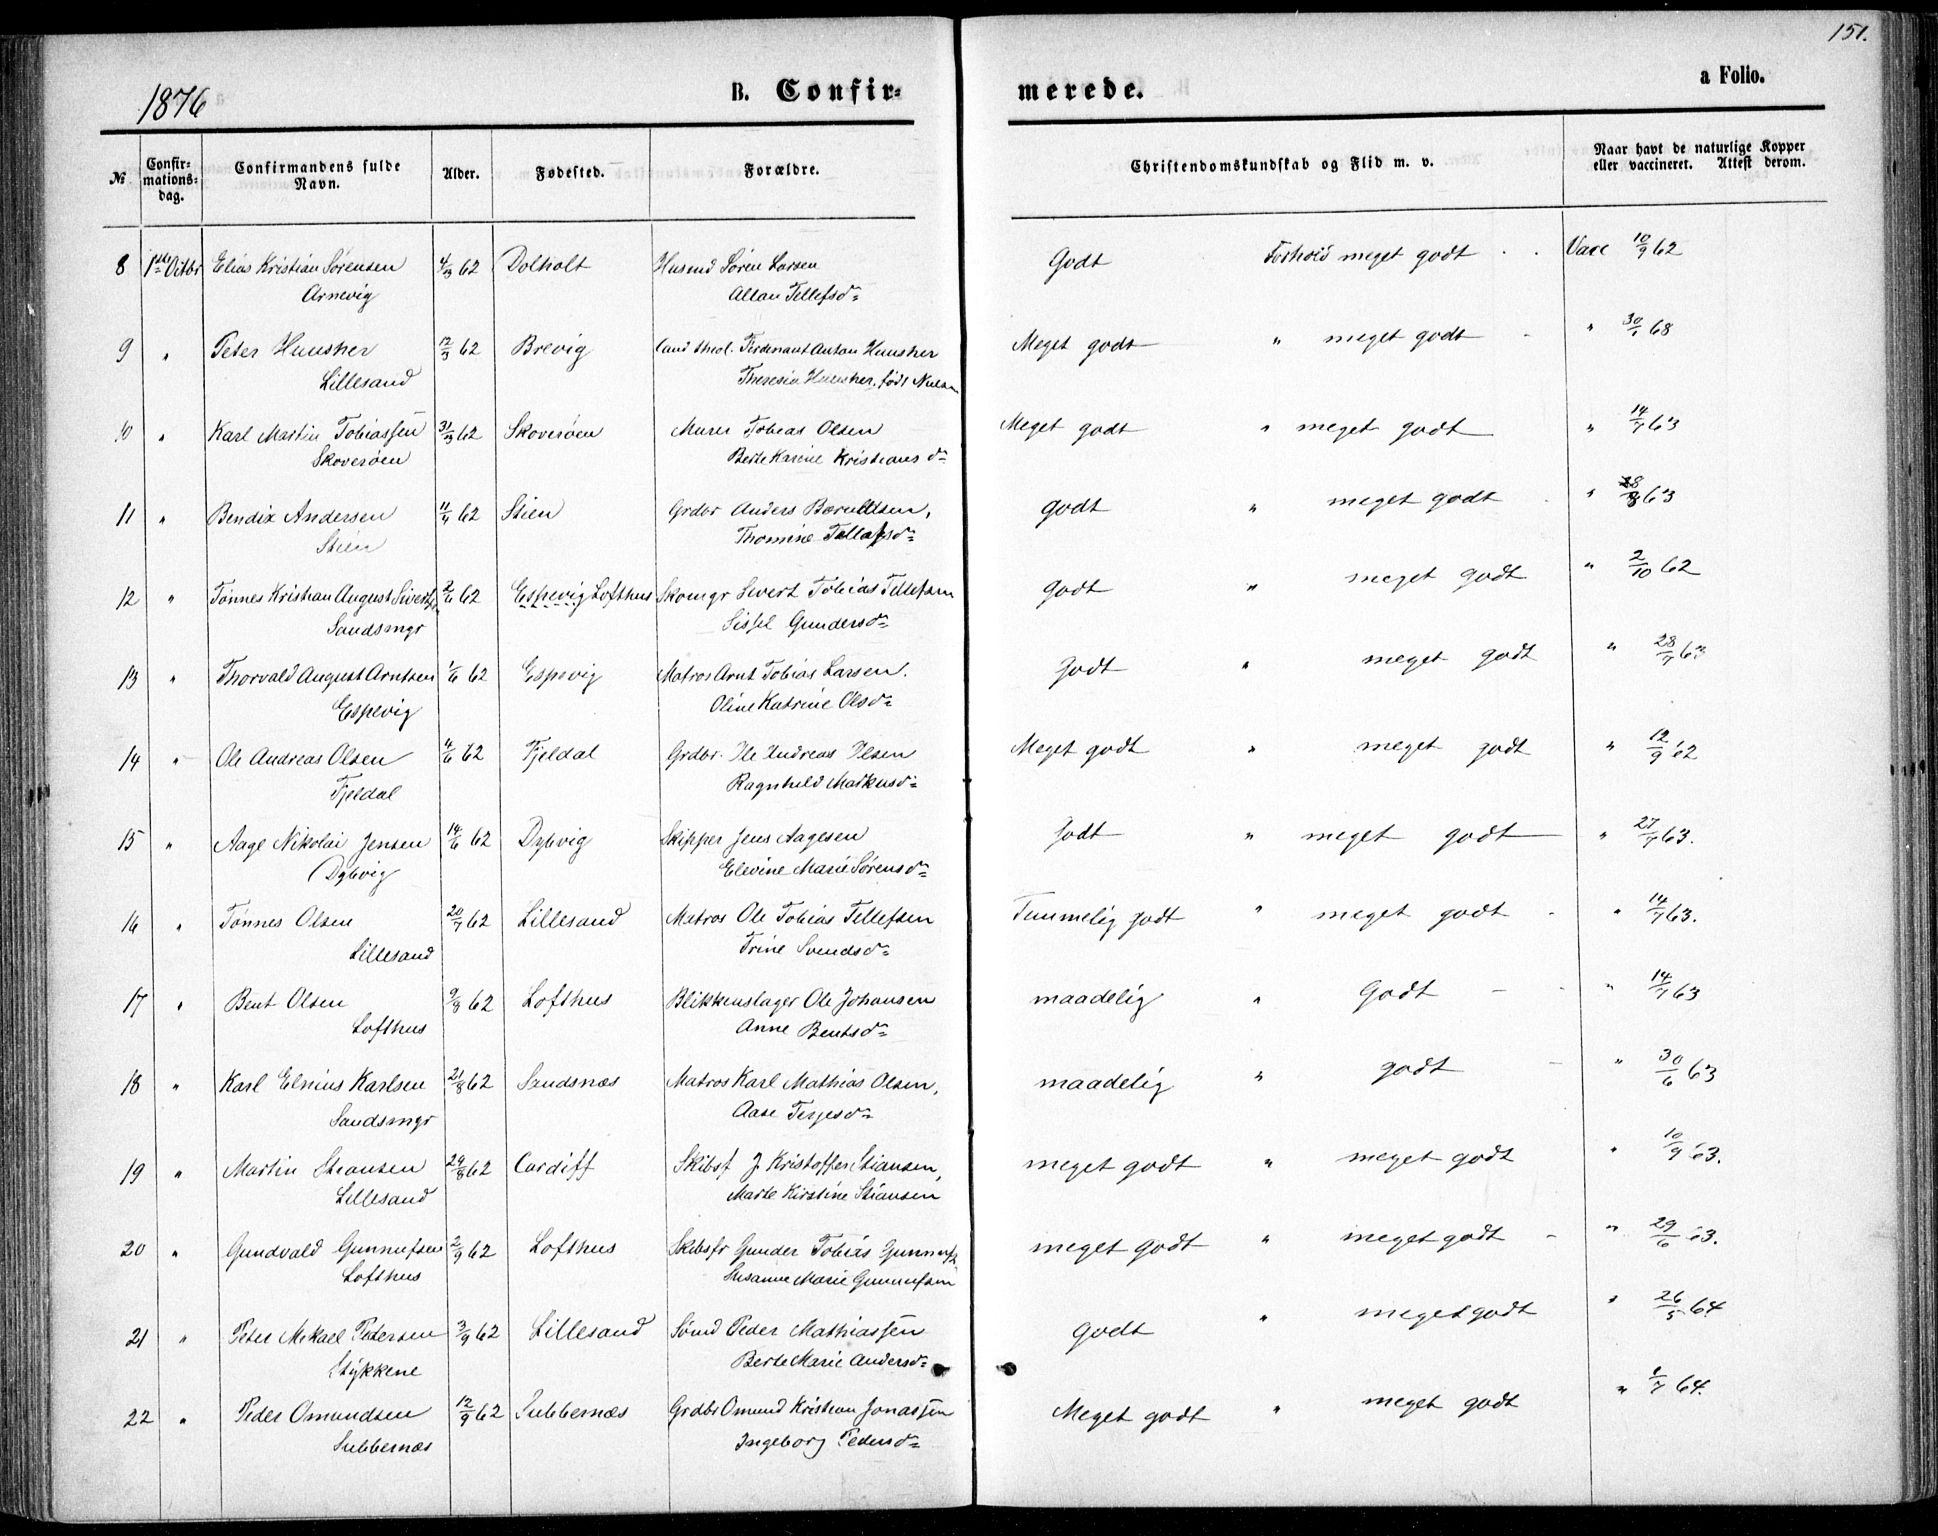 151.
1876
B. Confir-
merede.
a Folio.
No
Confir-
mations-
dag.
Confirmandens fulde
Navn.
Alder.
Fødested.
Forældre.
Christendomskundskab og Flid m. v.
Naar havt de naturlige Kopper
eller vaccineret. Attest derom.
8 1ste Octbr Elias Kristian Sørensen 4/3 62 Dolholt Husmd Søren Larsen Godt Forhold meget godt Vacc 10/9 62
Arnevig Tellefsd
9 " Peter 12/3 62 Brevig Cand theol. Ferdenant Anton Meget godt " meget godt " 30/1 68
Lillesand Theresia født
10 " Karl Martin Tobiassen 31/3 62 Skoverøen Murer Tobias Olsen Meget godt " meget godt " 14/7 63
Skoverøen Berte Karine Kristians d
11 " Bendix Andersen 11/4 62 Stien Grdbr Anders Berntsen, godt " meget godt " 63
Stien Thomine Tellefsd
12 " Tønnes Kristian August 2/6 62 Espevig Lofthus Skomgr Sivert Tobias Tellefsen godt " meget godt " 2/10 62
Sandsmgr Sissel Gundersd
13 " Thorvald August Arntsen 1/6 62 Espevig Matros Arnt Tobias Larsen. Godt " meget godt " 28/7 63
Espevig Oline Katrine Olsd
14 " Ole Andreas Olsen 4/6 62 Fjeldal Grdbr. Ole Andreas Olsen Meget godt " meget godt " 12/9 62
Fjeldal Ragnhild Markusd
15 " Aage Nikolai Jensen 14/6 62 Dybvig Skipper Jens Aagesen Godt " meget godt " 27/7 63.
Dybvig Elevine Marie Sørensd
16 " Tønnes Olsen 20/7 62 Lillesand Matros Ole Tobias Tellefsen Temmelig godt " meget godt " 14/7 63.
Lillesand Trine Svendsd
17 " Bent Olsen 9/8 62 Lofthus Blikkenslager Ole Johansen maadelig " Godt " 14/7 63
Lofthus Anne Bentsd
18 " Karl Elnius Karlsen 21/8 62 Sandsnæs Matros Karl Mathias Olsen, maadelig " godt " 30/6 63
Sandsmgr Aase Terjesd
19 " Martin Stiansen 24/8 62 Cardiff Skibsf J Kristoffer Stiansen, meget godt " meget godt " 10/9 63.
Lillesand Marte Kirstine Stiansen
20 " Gundvald Gunnufsen 2/9 62 Lofthus Skibsfr Gunder Tobias Gunnufs meget godt " meget godt " 29/6 63.
Lofthus Susanne Marie Gunnufsen
21 " Peter Mikael Petersen 3/9 62 Lillesand Sømd Peder Mathiassen godt " meget godt " 26/5 64
Stykkene Berte Marie Andersd
22 " Peder Omundsen 12/9 62 Tubbernæs Grdbr Omund Kristian Jonassen Meget godt " meget godt " 1/7 64.
Tubbernæs Ingeborg Pedersd